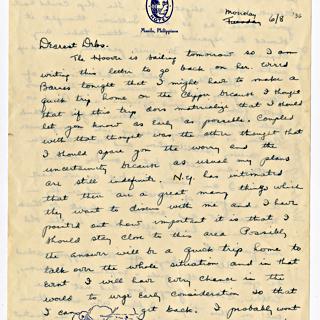 Manila, Philippines
Monday
Tuesday 6/8 '36
Dearest Debs.
The Hoover is sailing tomorrow so I am
writing this letter to go back on her.
Bares tonight that I might have to make a
quick trip home on the Clipper because I thought
that if this trip does materialize that I should
let you know as early as possible. Coupled
with that thought was the other thought that
I should spare you the worry and the
uncertainty because as usual my plans
are still indefinite. N.Y. has intimated
that there are a great many things which
they want to discuss with me and I have
pointed out how important it is that I
should stay close to this area. Possibly
the answer will be a quick trip home to
talk over the whole situation and in that
event I will have every chance in the
world to urge early consideration so that
I can get back. I probably wont